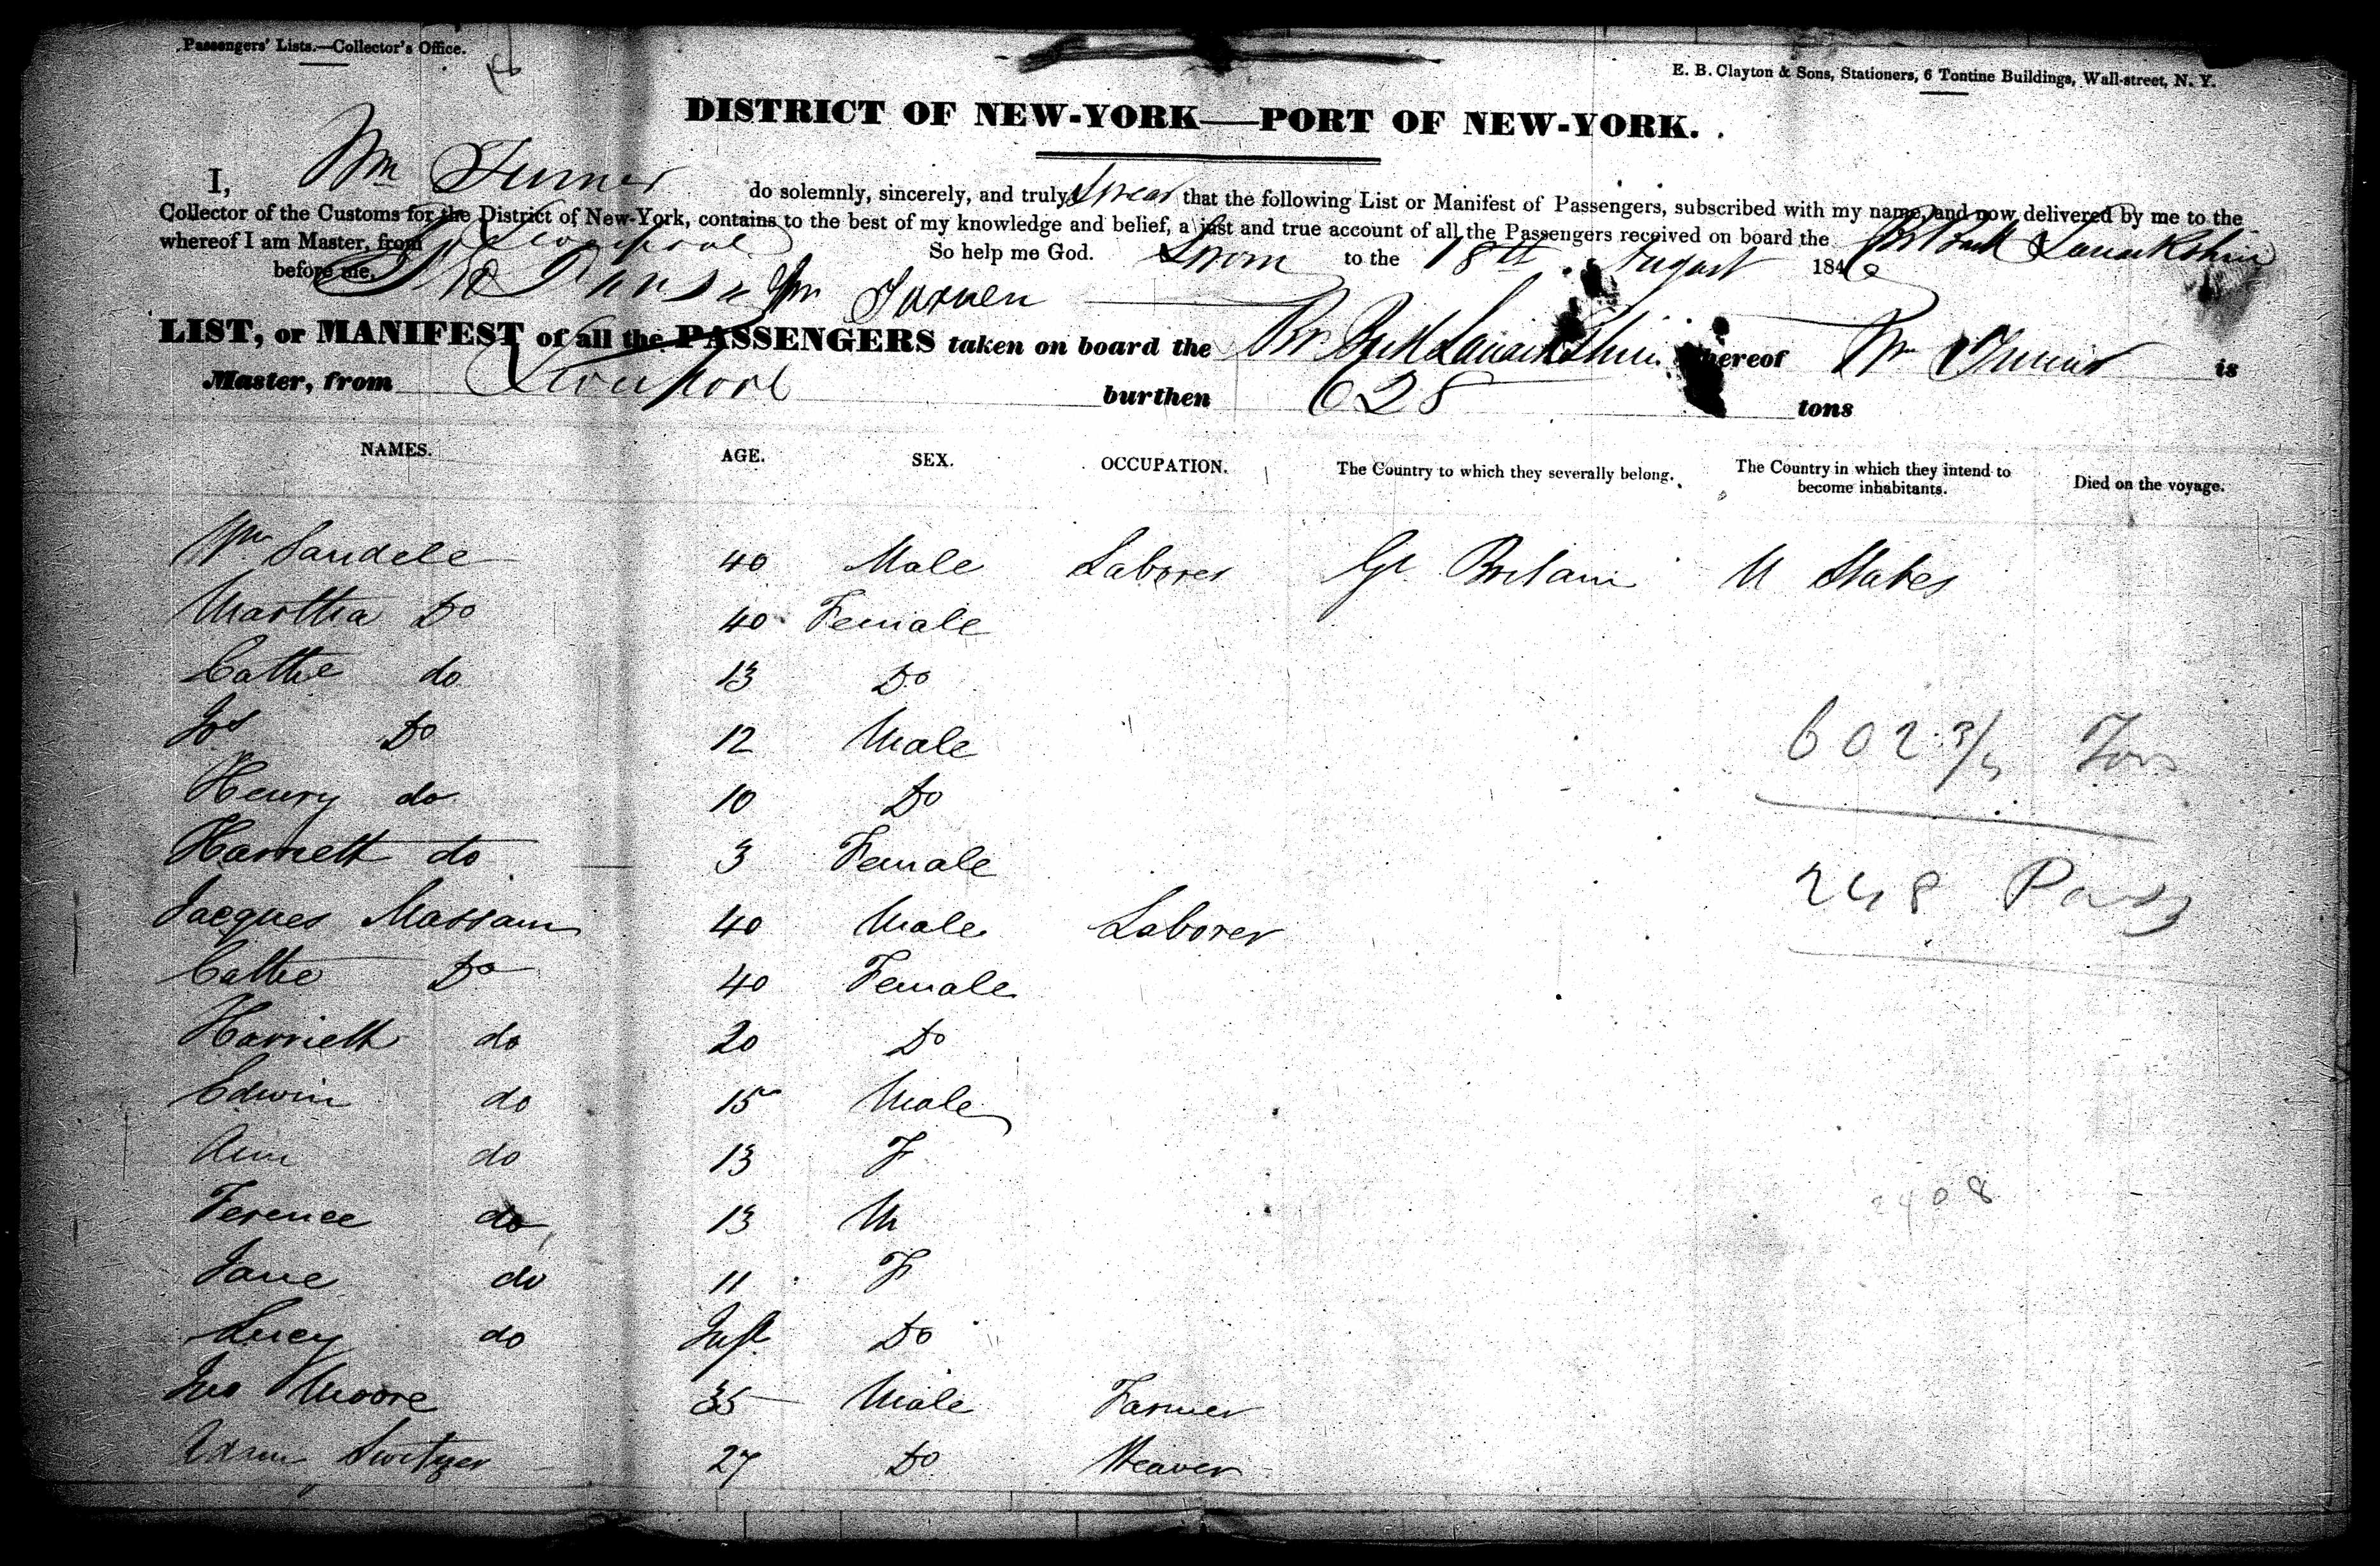 Passengers' Lists.—Collector's Office.
E. B. Clayton & Sons, Stationers, 6 Tontine Buildings, Wall-street, N. Y.
DISTRICT OF NEW-YORK—PORT OF NEW-YORK.
I, Wm Turner do solemnly, sincerely, and truly Swear that the following List or Manifest of Passengers, subscribed with my name, and now delivered by me to the
Collector of the Customs for the District of New-York, contains to the best of my knowledge and belief, a just and true account of all the Passengers received on board the Br Bark Lanarkshire
whereof I am Master, from Liverpool So help me God. Sworn to the 18th August 1846
before me, Wm Turner
LIST, or MANIFEST of all the PASSENGERS taken on board the Br Bark Lanarkshire whereof Wm Turner is
Master, from Liverpool burthen 628 tons
NAMES. AGE. SEX. OCCUPATION. The Country to which they severally belong. The Country in which they intend to become inhabitants. Died on the voyage.
Wm Sandele 40 Male Laborer Gt Britain U States
Martha Do 40 Female
Cathe do 13 Do
Jos Do 12 Male
602 3/5 Tons
Henry do 10 Do
Harriett do 3 Female
248 Pass
Jacques Massam 40 Male Laborer
Cathe Do 40 Female
Harriett do 20 Do
Edwin do 15 Male
Ann do 13 F
Terence do 13 M
2408
Jane do 11 F
Lucy do Inft Do
Jno Moore 35 Male Farmer
Switzer 27 Do Weaver